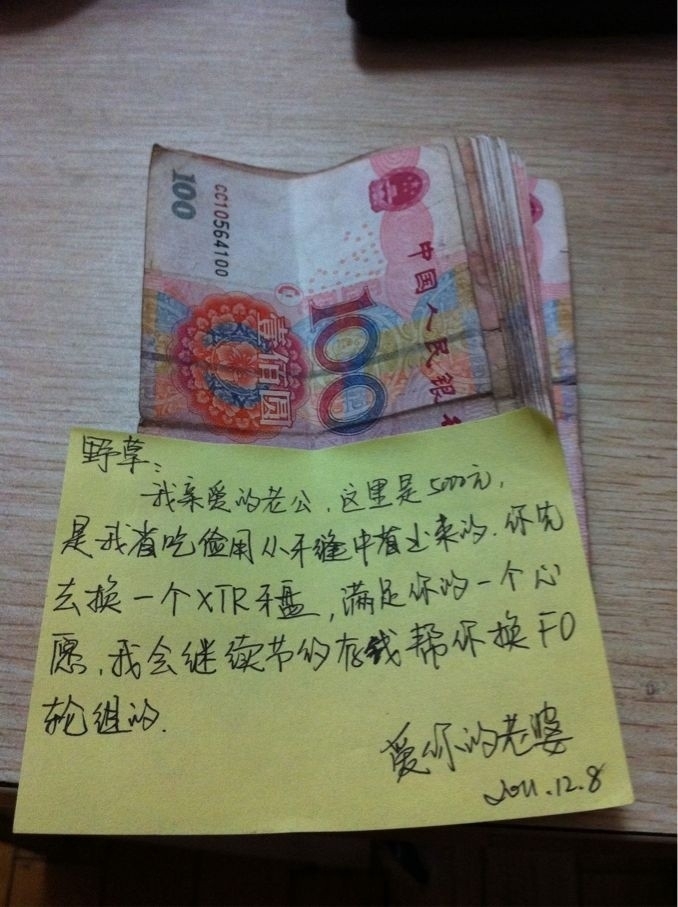 100
CC10564100
中国人民银
100
壹佰圆
野草：
我亲爱的老公，这里是5000元，
是我省吃俭用从牙缝中省出来的．你先
去换一个XTR牙盘，满足你的一个心
愿，我会继续节约存钱帮你换FO
轮组的．
爱你的老婆
2011.12.8